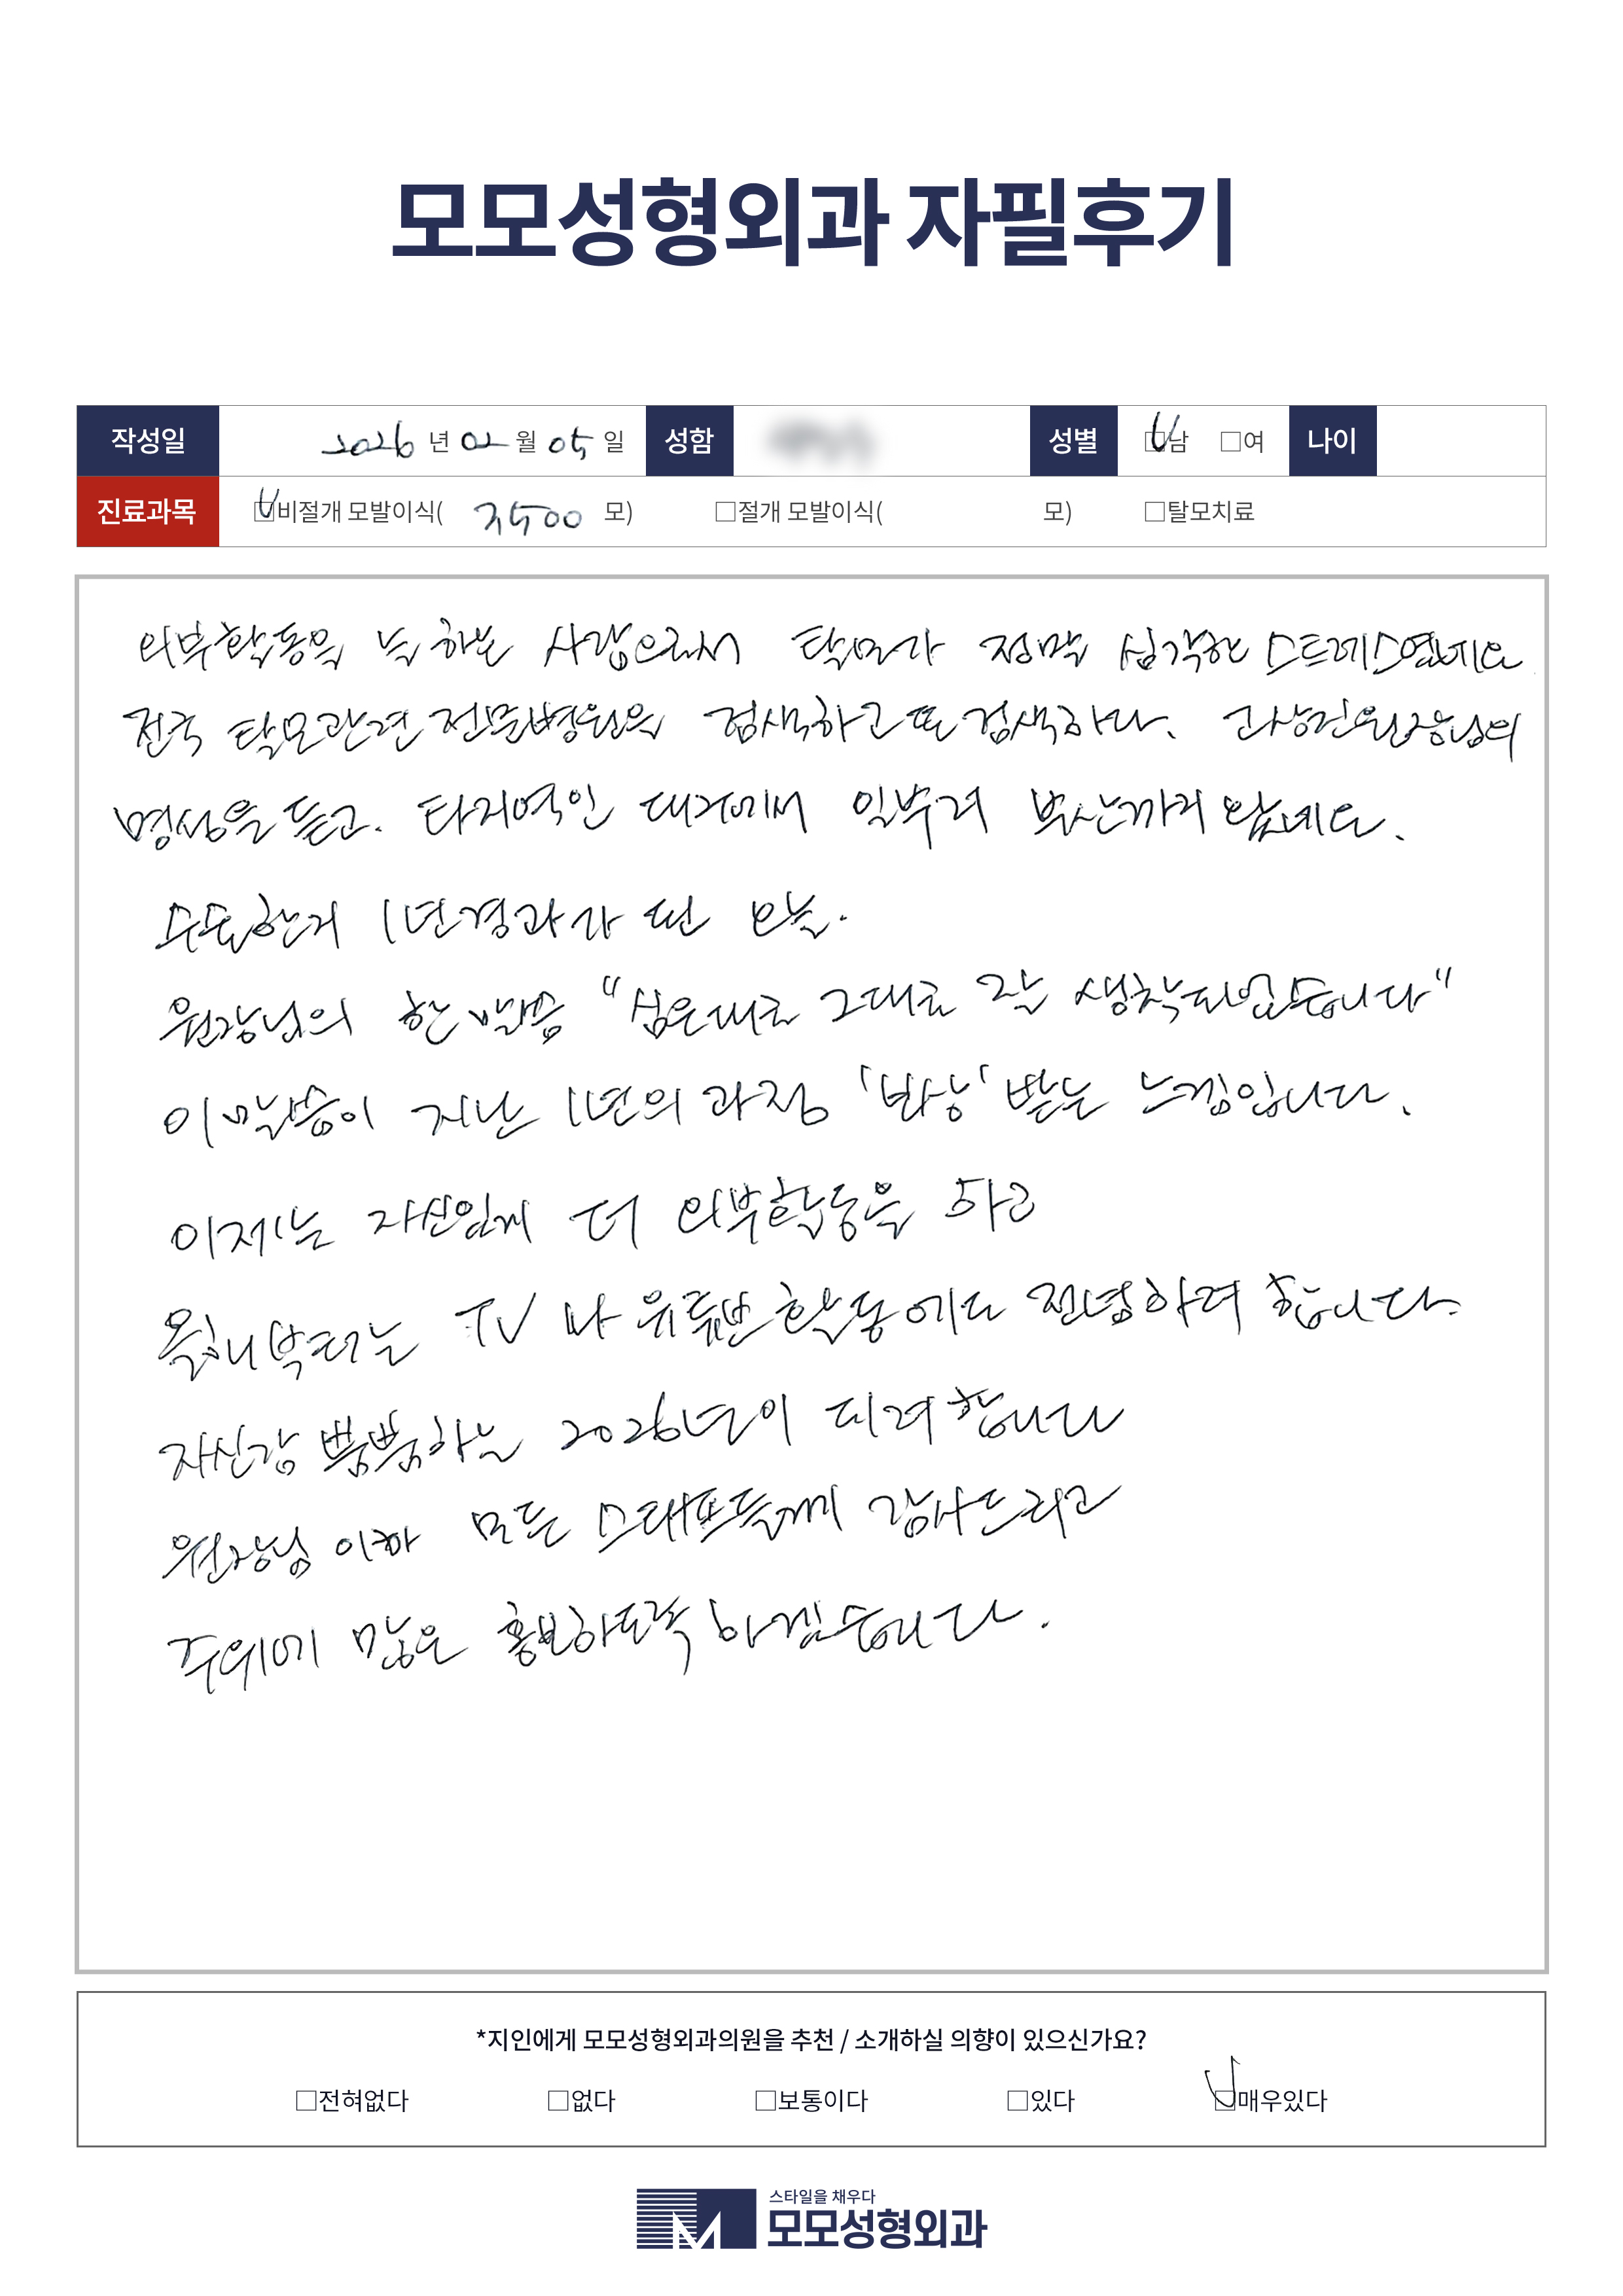 모모성형외과 자필후기
작성일 2026 년 02 월 05 일 성함 성별 ☑남 □여 나이
진료과목 ☑비절개 모발이식( 3,500 모) □절개 모발이식( 모) □탈모치료
외부활동을 늘 하는 사람으로서 탈모가 정말 심각한 스트레스였네요
전국 탈모관련 전문병원을 검색하고 또 검색하다. 고상진원장님의
명성을 듣고. 타지역인 대구에서 일부러 부산까지 왔네요.
수술한지 1년경과가 된 오늘.
원장님의 한 말씀 "심은대로 그대로 잘 생착되었습니다"
이 말씀이 지난 1년의 과정 '보상' 받는 느낌입니다.
이제는 자신있게 더 외부활동을 하고
올해부터는 TV 나 유튜브 활동에도 전념하려 합니다.
자신감 뿜뿜하는 2026년이 되려 합니다
원장님 이하 모든 스태프들께 감사드리고
주위에 많은 홍보하도록 하겠습니다.
*지인에게 모모성형외과의원을 추천 / 소개하실 의향이 있으신가요?
□전혀없다 □없다 □보통이다 □있다 ☑매우있다
스타일을 채우다
모모성형외과